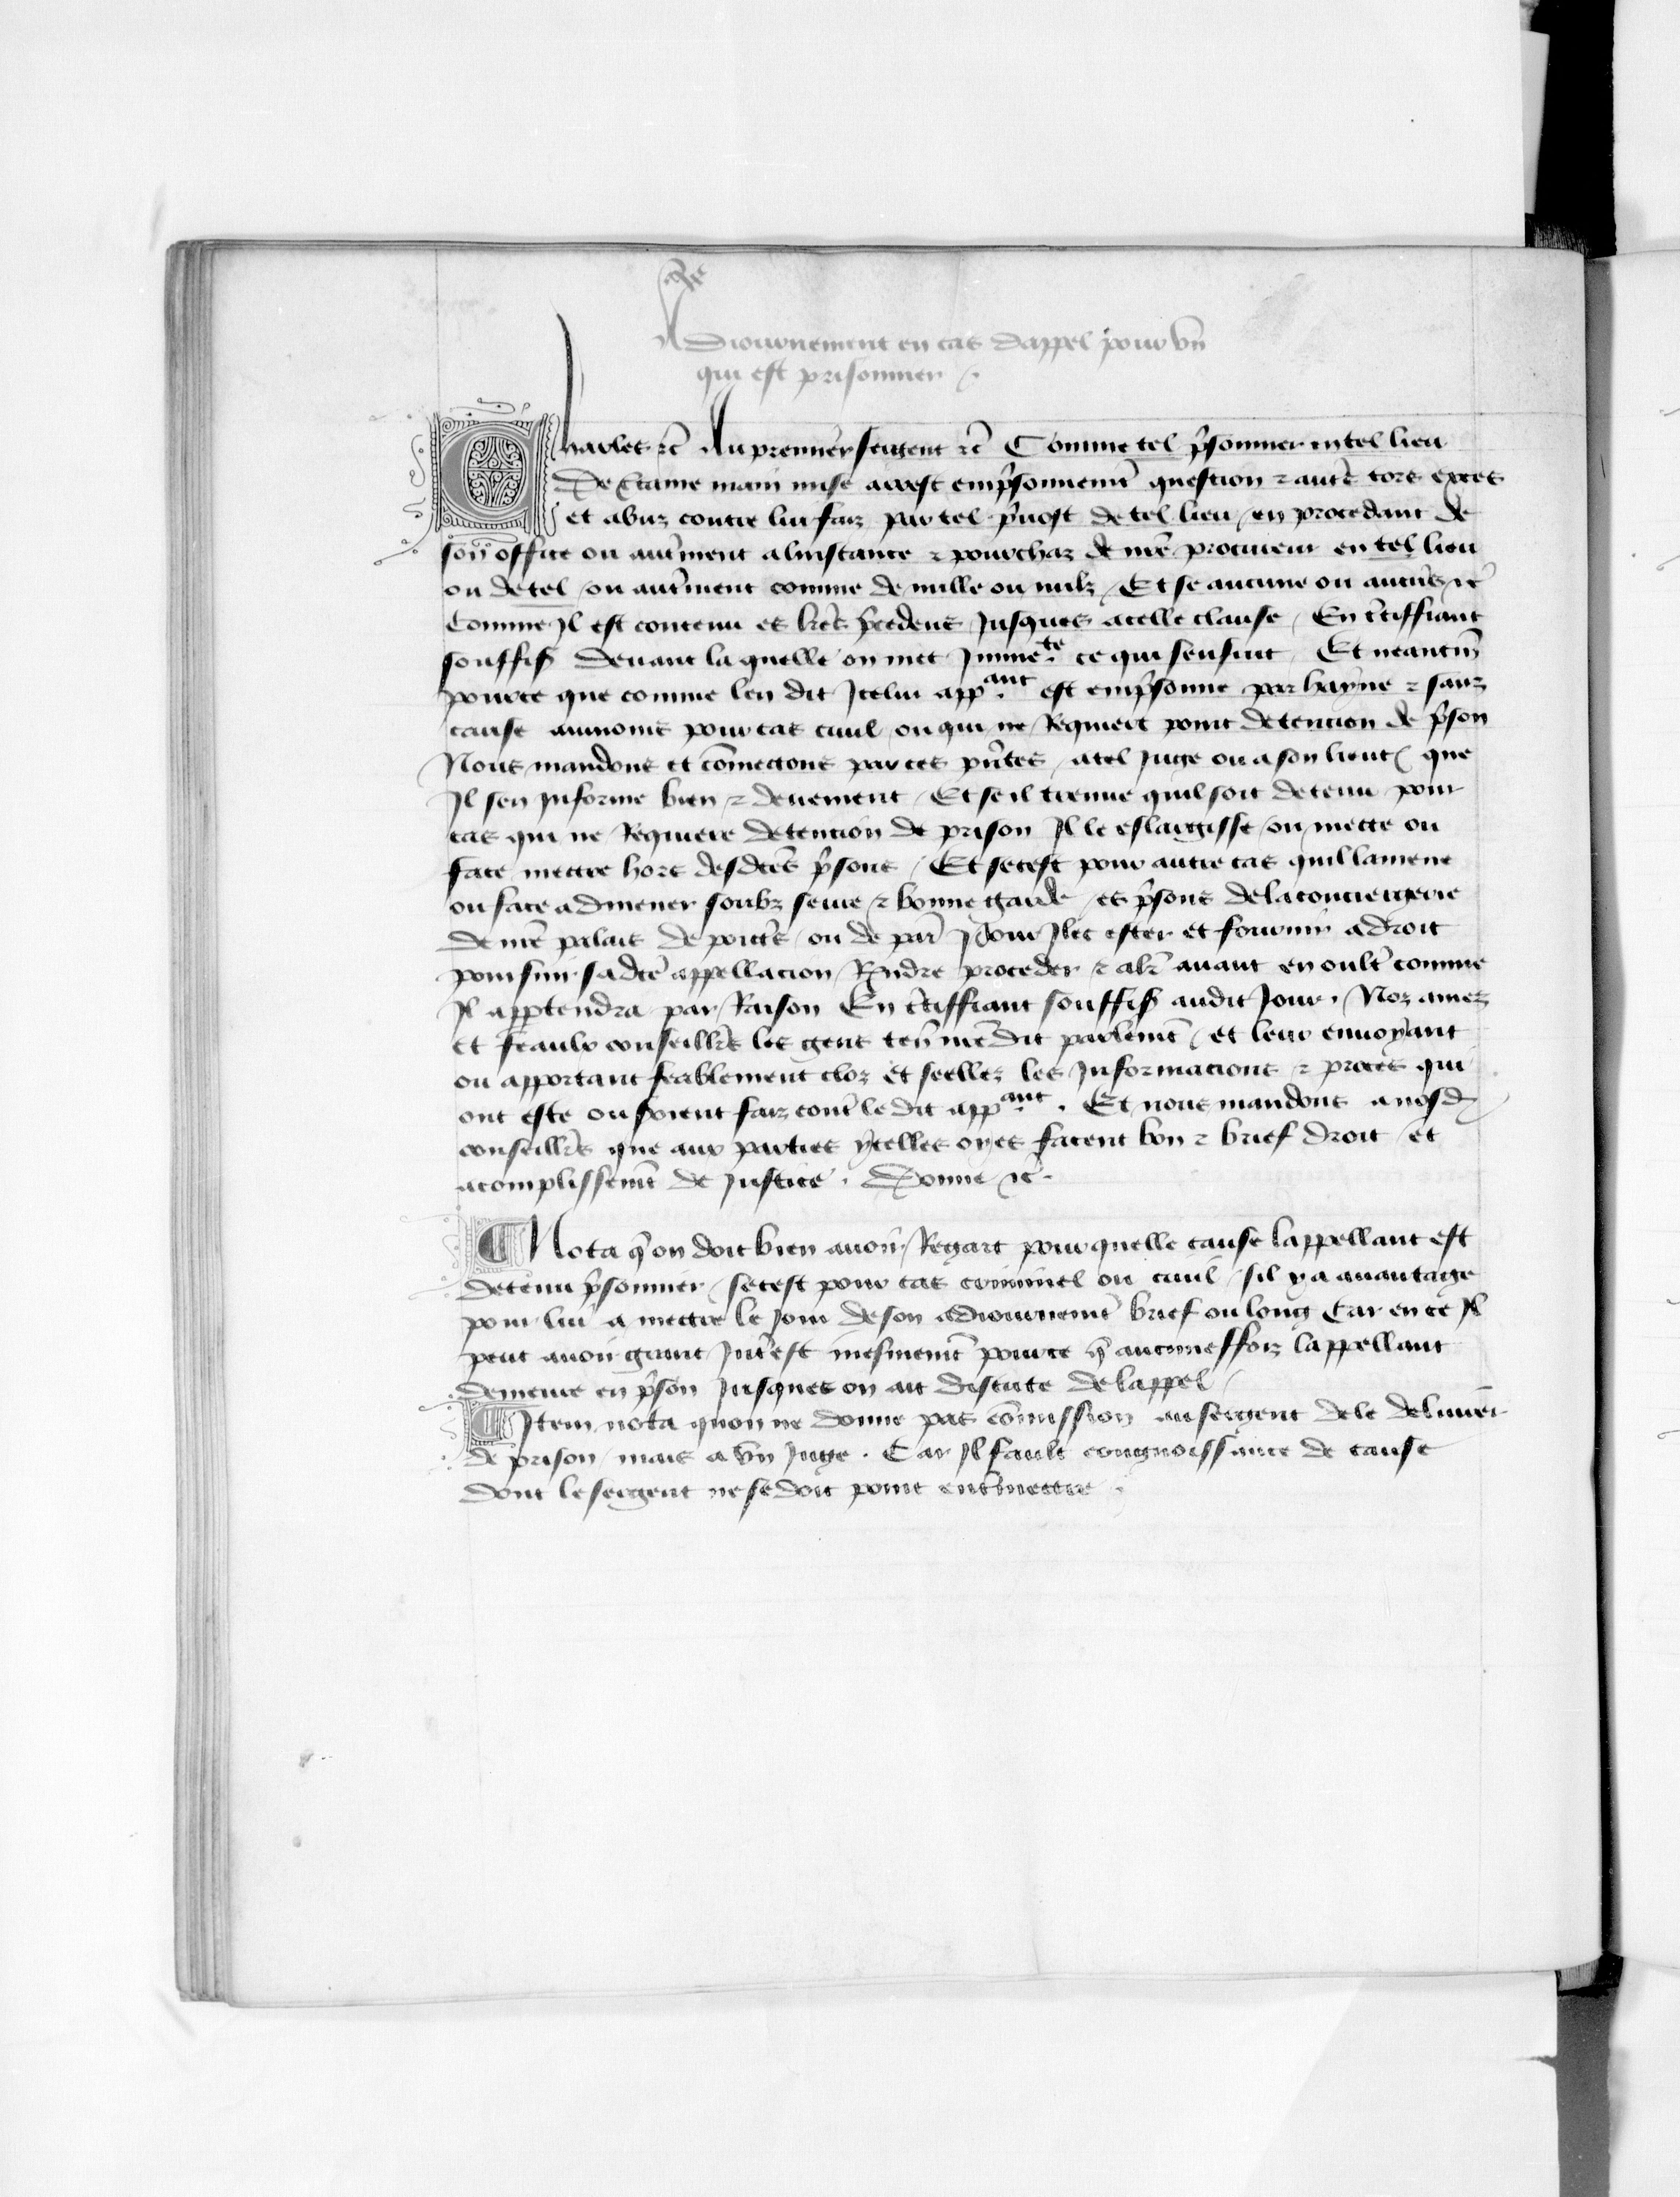 Adiournement en cas dappel pour vn
qui est prisonnier
Charles etc Au premier sergent etc Comme tel p̃sonnier en tel lieu
De c̃taine main mise arrest emp̃sonnemt̃ question ⁊ autẽ tors exces
et abuz contre lui faiz par tel p̃uost de tel lieu / en procedant de
son office ou aut̃ment alinstance ⁊ pourchaz de nr̃e procureur en tel lieu
ou de tel / ou aut̃ment comme de nulle ou nulz / Et se aucune ou aucũs etc
Comme Il est contenu es lr̃es p̃cedens Jusques a celle clause / En c̃tiffiant
souffiſ deuant la quelle on met Jmmete ce qui sensuit / Et neantm̃
pource que comme len dit Jcelui appant est emp̃sonne par hayne ⁊ sanz
cause aumoins pour cas ciuil / ou qui ne Requiert point detencion de p̃son
Nous mandons et cõmectons par ces pñtes / a tel Juge ou a son lieut̃ que
Il sen Jnforme bien ⁊ deuement / Et se il treuue quil soit detenu pour
cas qui ne Requiere detencion de prison Il le eslargisse / ou mette ou
face mettre hors desdc̃es p̃sons / Et se cest pour autre cas quil lamene
ou face admener soubz seure ⁊ bonne garde / es p̃sons de la conciergerie
de nr̃e palais de poict̃s / ou de par̃ pour Jlec ester et fournir a droit
poursuir sa dc̃e appellacion / Respndre proceder ⁊ alr̃ auant en oult̃ comme
Il apptendra par Raison En c̃tiffiant souffiſ audit Jour . Noz amez
et feaulx conseillr̃s les gens ten̄ nr̃edit parlemt̃ / et leur enuoyant
ou apportant feablement cloz et seellez les Jnformacions ⁊ proces qui
ont este ou soient faiz cont̃ le dit appant . Et nous mandons a nosd̃
conseillr̃s que aux parties ycelles oyes facent bon ⁊ brief droit / et
acomplissemt̃ de Justice . Donne etc .
¶ Nota q̃ on doit bien auoir Regart pour quelle cause lappellant est
detenu p̃sonnier / se cest pour cas criminel ou ciuil / sil y a auantage
pour lui a mettre le Jour de son adiournemt̃ brief ou long Car en ce Il
peut auoir grant Jnt̃est mesmemt̃ pource q̃ aucuneffoiz lappellant
demeure en p̃son Jusques on ait discute de lappel /
¶ Item nota quon ne donne pas cõmission au sergent de le deliurer
de prison / mais a vn Juge . Car Il fault congnoissance de cause
dont le sergent ne se doit point ent̃mettre .